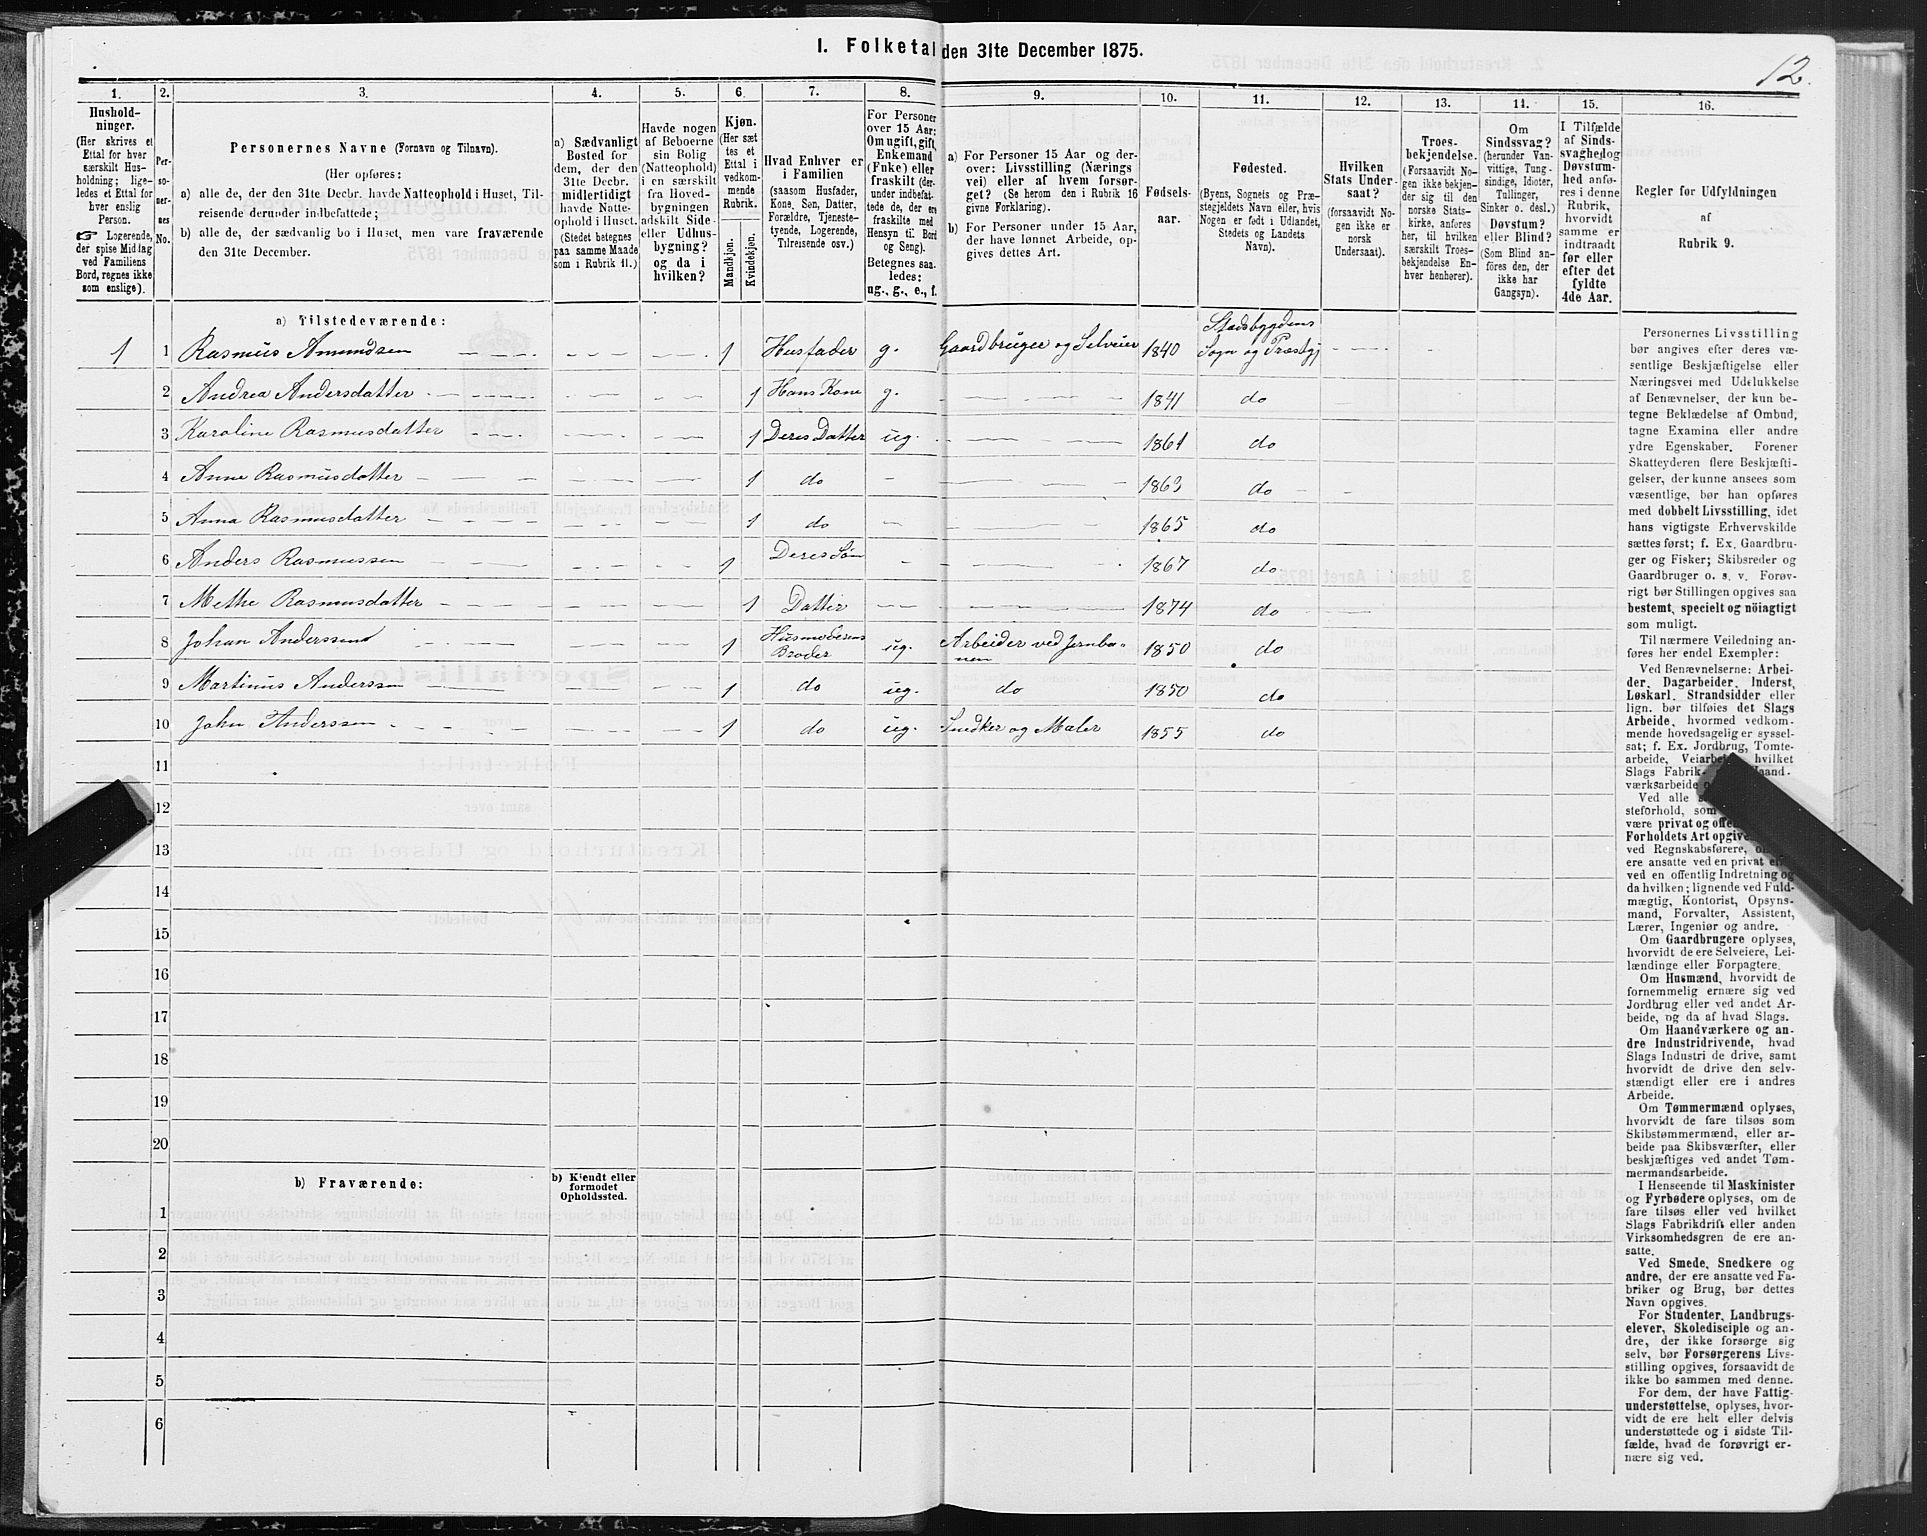 I. Folketal den 31te December 1875.
12.
1. 2. 3. 4. 5. 6. 7. 8. 9. 10. 11. 12. 13. 14. 15. 16.
Hushold-
ninger.
(Her skrives et
Ettal for hver
særskilt Hus-
holdning; lige-
ledes et Ettal for
hver enslig
Person.
☞ Logerende,
der spise Middag
ved Familiens
Bord, regnes ikke
som enslige).
Per-
so-
ner-
nes
No.
Personernes Navne (Fornavn og Tilnavn).
(Her opføres:
a) alle de, der den 31te Decbr. havde Natteophold i Huset, Til-
reisende derunder indbefattede;
b) alle de, der sædvanlig bo i Huset, men vare fraværende
den 31te December.
a) Sædvanligt
Bosted for
dem, der den
31te Decbr.
midlertidigt
havde Natte-
ophold i Huset.
(Stedet betegnes
paa samme Maade
som i Rubrik 11.)
Havde nogen
af Beboerne
sin Bolig
(Natteophold)
i en særskilt
fra Hoved-
bygningen
adskilt Side-
eller Udhus-
bygning?
og da i
hvilken?
Kjøn.
(Her sæt
tes et
Ettal i
vedkom-
mende
Rubrik.
Mandkjøn.
Kvindekjøn.
Hvad Enhver er
i Familien
(saasom Husfader,
Kone, Søn, Datter,
Forældre, Tjeneste-
tyende, Logerende,
Tilreisende osv.)
For Personer
over 15 Aar:
Om ugift, gift,
Enkemand
(Enke) eller
fraskilt (der-
under indbefat-
tede de, der ere
fraskilte med
Hensyn til Bord
og Seng).
Betegnes saa-
ledes:
ug., g., e., f.
a) For Personer 15 Aar og der-
over: Livsstilling (Nærings
vei) eller af hvem forsør-
get? (Se herom den i Rubrik 16
givne Forklaring).
b) For Personer under 15 Aar,
der have lønnet Arbeide, op-
gives dettes Art.
Fødsels-
aar.
Fødested.
(Byens, Sognets og Præ-
stegjeldets Navn eller, hvis
Nogen er født i Udlandet,
Stedets og Landets
Navn).
Hvilken
Stats Under-
saat?
(forsaavidt No-
gen ikke er
norsk
Undersaat).
Troes-
bekjendelse.
(Forsaavidt No-
gen ikke bekjen-
der sig til den
norske Stats-
kirke, anføres
her, til hvilken
særskilt Troes-
bekjendelse En-
hver henhører).
Om
Sindssvag?
(herunder Van-
vittige, Tung-
sindige, Idioter,
Tullinger,
Sinker o. desl.)
Døvstum?
eller Blind?
(Som Blind an-
føres den, der
ikke har
Gangsyn).
I Tilfælde
af Sinds-
svaghed og
Døvstum-
hed anfø-
res i denne
Rubrik,
hvorvidt
samme er
indtraadt
før eller
efter det
fyldte
4de Aar.
Regler før Udfyldningen
af
Rubrik 9.
a) Tilstedeværende:
1 1 Rasmus Amundsen 1 Husfader g. Gaardbruger og Selveier 1840 Stadsbygdens
Sogn og Præstgj
2 Andrea Andersdatter 1 Hans Kone g. 1841 do
3 Karoline Rasmusdatter 1 Deres Datter ug. 1861 do
4 Anne Rasmusdatter 1 do 1863 do
5 Anna Rasmusdatter 1 do 1865 do
6 Anders Rasmussen 1 Deres Søn 1867 do
7 Methe Rasmusdatter 1 Datter 1874 do
8 Johan Anderssen 1 Husmoderens
Broder ug. Arbeider ved Jernba-
nen 1850 do
9 Martinus Anderssen 1 do ug. do 1850 do
10 John Anderssen 1 do ug. Snedker og Maler 1855 do
11
12
13
14
15
16
17
18
19
20
b) Fraværende:
b) Kjendt eller
formodet
Opholdssted.
1
2
3
4
5
6
Personernes Livsstilling
bør angives efter deres væ-
sentlige Beskjæftigelse eller
Næringsvei med Udelukkelse
af Benævnelser, der kun be-
tegne Beklædelse af Ombud,
tagne Examina eller andre
ydre Egenskaber. Forener
Skatteyderen flere Beskjæfti-
gelser, der kunne ansees som
væsentlige, bør han opføres
med dobbelt Livsstilling, idet
hans vigtigste Erhvervskilde
sættes først; f. Ex. Gaardbru-
ger og Fisker; Skibsreder og
Gaardbruger o. s. v. Forøv-
rigt bør Stillingen opgives saa
bestemt, specielt og nöiagtigt
som muligt.
Til nærmere Veiledning an-
føres her endel Exempler:
Ved Benævnelserne: Arbei-
der, Dagarbeider, Inderst,
Løskarl, Strandsidder eller
lign. bør tilføies det Slags
Arbeide, hvormed vedkom-
mende hovedsagelig er syssel-
sat; f. Ex. Jordbrug, Tomte-
arbeide, Veiarbeide, hvilket
Slags Fabrik- Haand-
værksarbeide
Ved alle
steforhold, som
være privat og
Forholdets Art
ved Regnskabsførere,
ere ansatte ved en privat
ved en offentlig Indretning og
da hvilken; lignende ved Fuld-
mægtig, Kontorist, Opsyns-
mand, Forvalter, Assistent,
Lærer, Ingeniør og andre.
Om Gaardbrugere oplyses,
hvorvidt de ere Selveiere, Lei-
lændinge eller Forpagtere.
Om Husmænd, hvorvidt de
fornemmelig ernære sig ved
Jordbrug eller ved andet Ar-
beide, og da af hvad Slags.
Om Haandværkere og an-
dre Industridrivende, hvad
Slags Industri de drive, samt
hvorvidt de drive den selv-
stændigt eller ere i andres
Arbeide.
Om Tømmermænd oplyses,
hvorvidt de fare tilsøs som
Skibstømmermænd, eller ar-
beide paa Skibsværfter, eller
beskjæftiges ved andet Tøm-
mermandsarbeide.
I Henseende til Maskinister
og Fyrbødere oplyses, om de
fare tilsøs eller ved hvilket
Slags Fabrikdrift eller anden
Virksomhedsgren de ere an-
satte.
Ved Smede, Snedkere og
andre, der ere ansatte ved Fa-
briker og Brug, bør dettes
Navn opgives.
For Studenter, Landbrugs-
elever, Skoledisciple og an-
dre, der ikke forsørge sig
selv, bør Forsørgerens Livs-
stilling opgives, forsaavidt de
ikke bo sammen med denne.
For dem, der have Fattig-
understøttelse, oplyses, hvor-
vidt de ere helt eller delvis
understøttede og i sidste Til-
fælde, hvad de forøvrigt er-
nære sig ved.